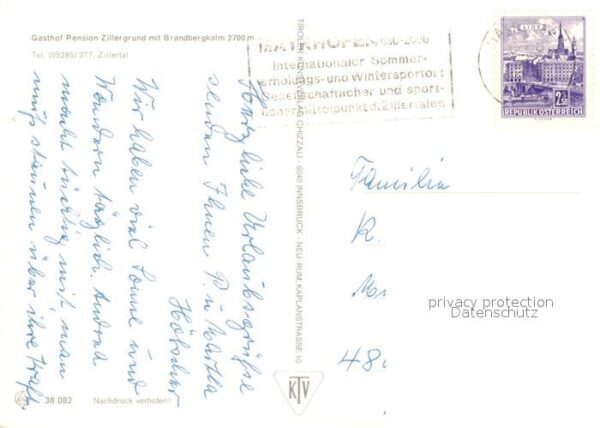 Gasthof Pension Zillergrund mit Brandbergkolm 2700 m
Tel. (05285) 377, Zillertal
MAYRHOFEN 630-2000
Internationaler Sommer-
erholungs- und Wintersportort
Gesellschaftlicher und sport-
licher Mittelpunkt d. Zillertales
2.50
REPUBLIK ÖSTERREICH
TIROLER KUNSTVERLAG CHIZZALI · 6040 INNSBRUCK - NEU-RUM, KAPLANSTRASSE 10
Herzliche Urlaubsgrüße
senden Ihnen P. u Martha
Hölscher
Wir haben viel Sonne und
Wandern täglich. Andrea
macht tüchtig mit, man
muß staunen über ihre Kraft.
Familie
K.
48
privacy protection
Datenschutz
KTV
38 082
Nachdruck verboten!